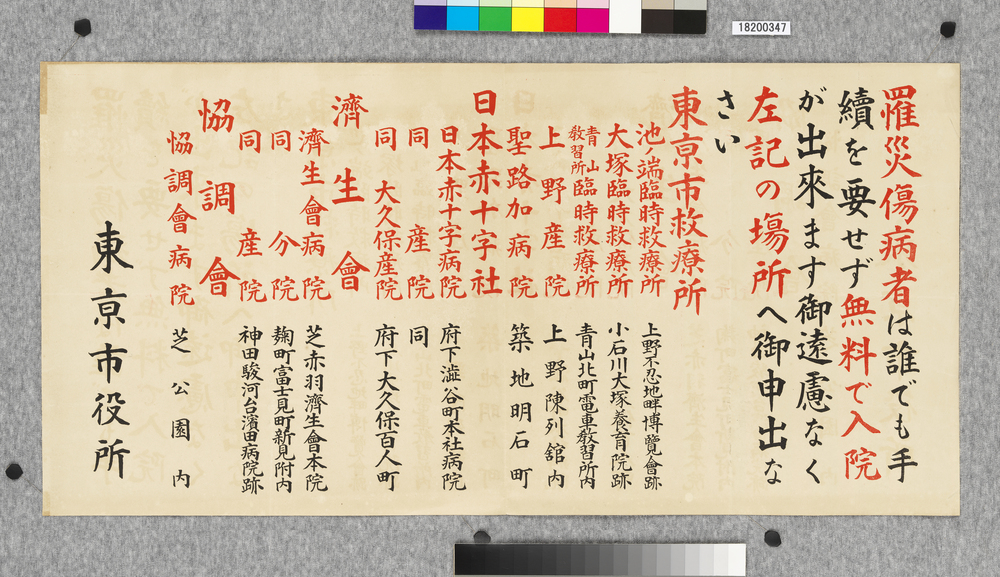 18200347
罹災傷病者は誰でも手
續を要せず無料で入院
が出來ます御遠慮なく
左記の塲所へ御申出な
さい
東亰市救療所
池ノ端臨時救療所 上野不忍池畔博覽會跡
大塚臨時救療所 小石川大塚養育院跡
青山教習所臨時救療所 青山北町電車教習所内
上野産院 上野陳列舘内
聖路加病院 築地明石町
日本赤十字社
日本赤十字病院 府下澁谷町本社病院
同産院 同
同大久保産院 府下大久保百人町
濟生會
濟生會病院 芝赤羽濟生會本院
同分院 麹町富士見町新見附内
同産院 神田駿河台濱田病院跡
協調會
協調會病院 芝公園内
東亰市役所